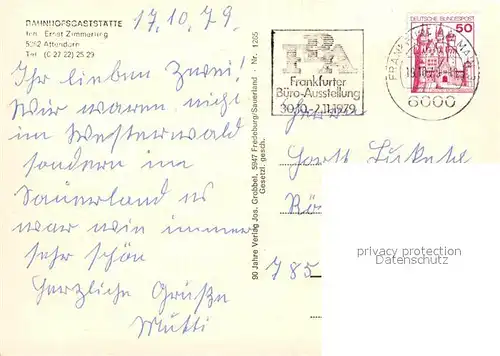 BAHNHOFSGASTSTÄTTE
Inh. Ernst Zimmering
5952 Attendorn
Tel. (0 27 22) 25 29
17.10.79.
Ihr lieben Zwei!
Wir waren nicht
im Westerwald
sondern im
Sauerland es
war wie immer
sehr schön
Herzliche Grüße
Mutti
90 Jahre Verlag Jos. Grobbel, 5947 Fredeburg/Sauerland · Nr. 1285
Gesetzl. gesch.
Frankfurter
Büro-Ausstellung
30.10.-2.11.1979
DEUTSCHE BUNDESPOST
50
6000
785
privacy protection
Datenschutz